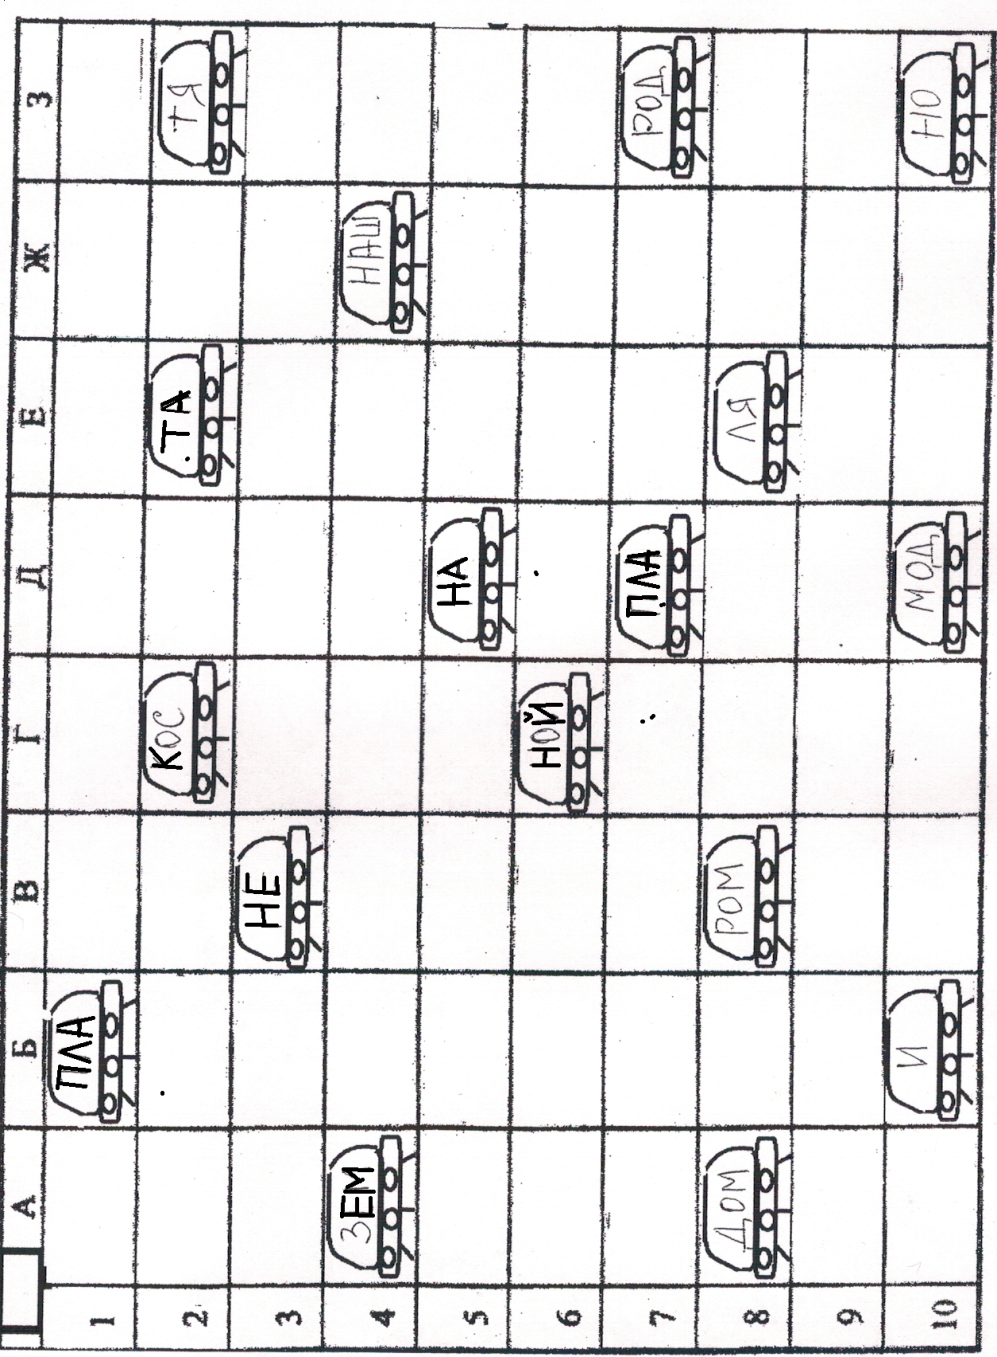 А Б В Г Д Е Ж З
1 ПЛА
2 КОС ТА ТЯ
3 НЕ
4 ЗЕМ НАШ
5 НА
6 НОЙ
7 ПЛА РОД
8 ДОМ РОМ ЛЯ
9
10 И МОД НО